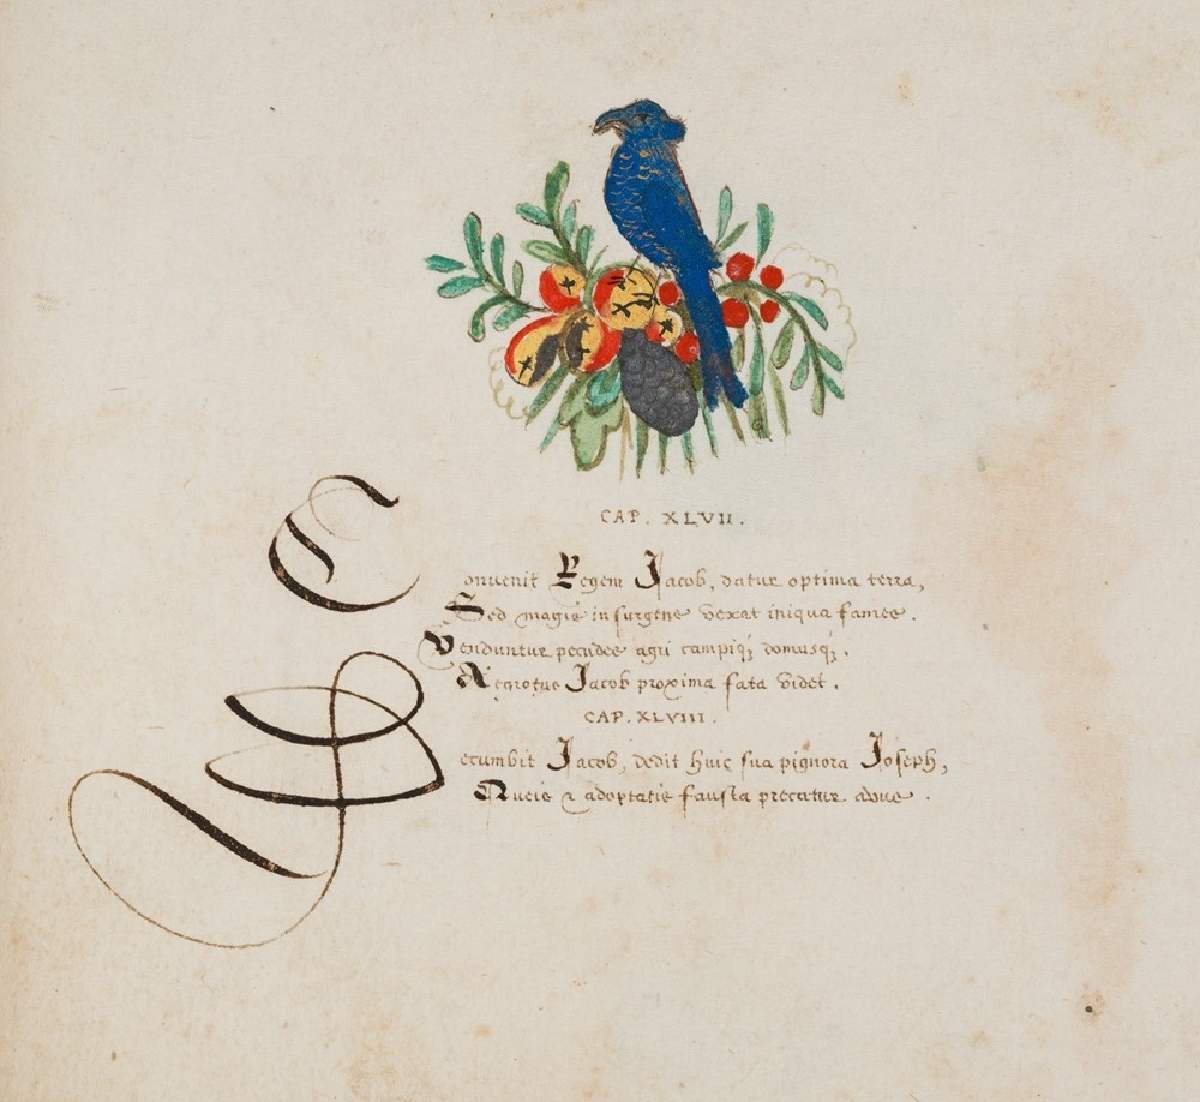 CAP. XLVII.
Convenit Regem Jacob, datur optima terra,
Sed magis insurgens vexat iniqua fames.
Venduntur pecudes agri campiq; domusq;.
Aegrotus Jacob proxima fata videt.
CAP. XLVIII.
Decumbit Jacob, dedit huic sua pignora Joseph,
adoptatis fausta precatur avus.